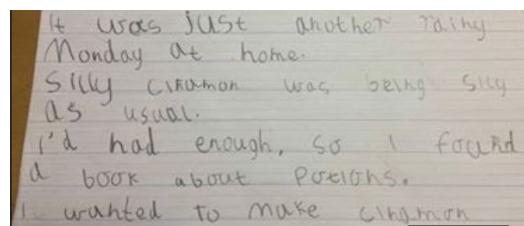 It was just another rainy
Monday at home.
Silly cinamon was being silly
as usual.
I'd had enough, so I found
a book about Potions.
I wanted to make cinamon